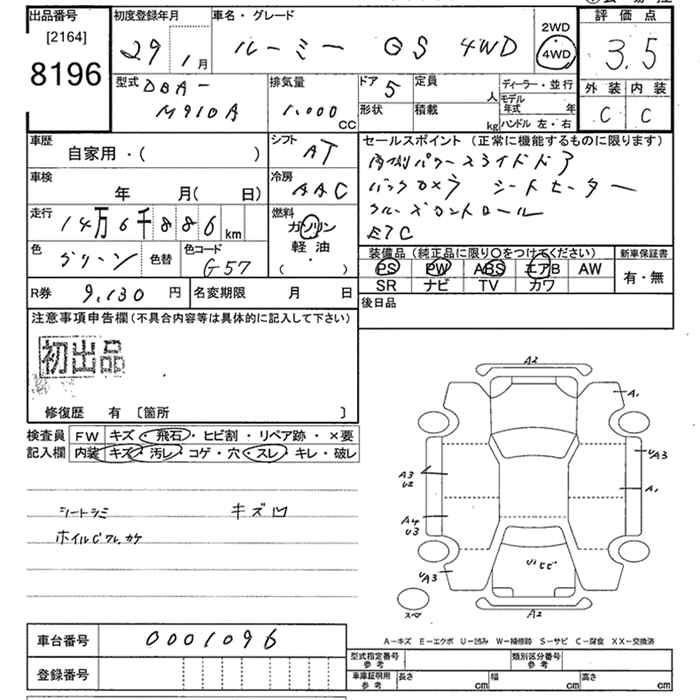 出品番号
[2164]
8196
初度登録年月
29年1月
車名・グレード
ルーミー GS 4WD
2WD
4WD
評価点
3.5
外装 内装
C C
型式
DBA-
M910A
排気量
1.000
CC
ドア 5
定員
人
形状
積載
kg
ディーラー・並行
モデル年式 年
ハンドル 左・右
車歴
自家用・( )
シフト
AT
車検
年 月( 日)
冷房
AAC
走行
14万6千886km
燃料
ガソリン
軽油
・( )
色
グリーン
色替
色コード
G57
R券 9,130 円
名変期限 月 日
セールスポイント (正常に機能するものに限ります)
両側パワースライドドア
バックカメラ シートヒーター
クルーズコントロール
ETC
装備品 (純正品に限り○をつけてください)
PS PW ABS エアB AW
SR ナビ TV カワ
新車保証書
有・無
後日品
注意事項申告欄(不具合内容等は具体的に記入して下さい)
初出品
修復歴 有 〔箇所 〕
検査員
記入欄
FW キズ・飛石・ヒビ割・リペア跡・×要
内装 キズ・汚レ・コゲ・穴・スレ・キレ・破レ
シートシミ
キズ凹
ホイルCワレ.カケ
A2
A1
A3
U2
UA3
A1
A4
U3
UA3
A2
スペア
A-キズ E-エクボ U-凹み W-補修跡 S-サビ C-腐食 XX-交換済
車台番号 0001096
登録番号
型式指定番号
参考
類別区分番号
参考
車庫証明用
参考
長さ cm 幅 cm 高さ cm